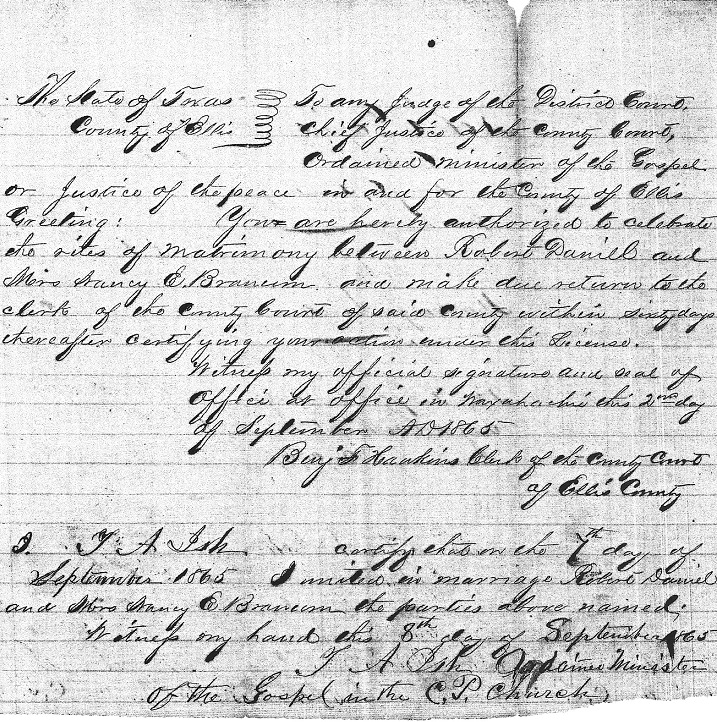 The State of Texas To any Judge of the District Court,
County of Ellis Chief Justice of the County Court,
Ordained minister of the Gospel
or Justice of the peace in and for the County of Ellis
Greeting: You are hereby authorized to celebrate
the rites of matrimony between Robert Daniel and
Mrs Nancy E. Brancum and make due return to the
clerk of the County Court of said County within sixty days
thereafter certifying your action under this License.
Witness my official signature and seal of
Office at office in Waxahachie this 2nd day
of September AD 1865
Benj F Hawkins Clerk of the County Court
of Ellis County
I. T A Ish certify that on the 7th day of
September 1865 I united in marriage Robert Daniel
and Mrs Nancy E Brancum the parties above named;
Witness my hand this 8th day of September 1865
T A Ish Ordained Minister
of the Gospel in the C. P. Church